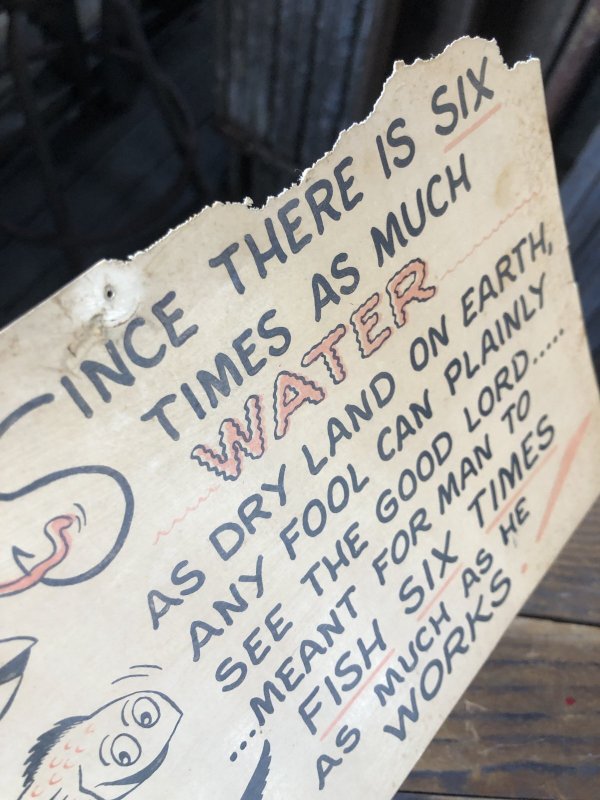 SINCE THERE IS SIX
TIMES AS MUCH
WATER
AS DRY LAND ON EARTH,
ANY FOOL CAN PLAINLY
SEE THE GOOD LORD.....
...MEANT FOR MAN TO
FISH SIX TIMES
AS MUCH AS HE
WORKS.